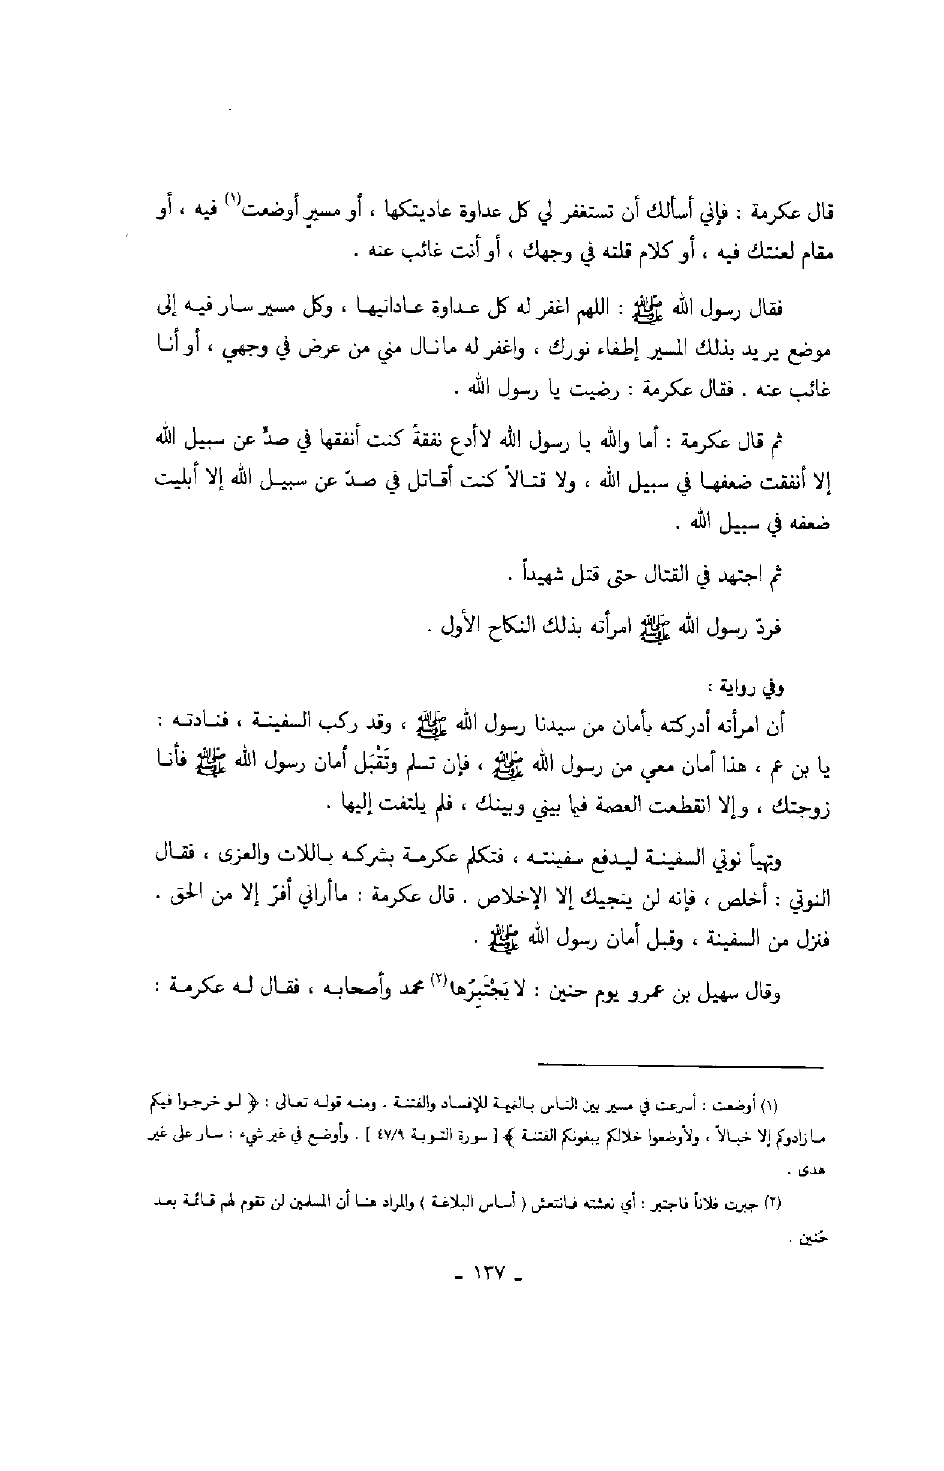 قال عكرمة : فإني أسألك أن تستغفر لي كل عداوة عاديتكها ، أو مسيرٍ أوضعت(١) فيه ، أو
مقام لعنتك فيه ، أو كلام قلته في وجهك ، أو أنت غائب عنه .
فقال رسول الله ﷺ : اللهم اغفر له كل عداوة عادانيها ، وكل مسير سار فيه إلى
موضع يريد بذلك المسير إطفاء نورك ، واغفر له مانال مني من عرض في وجهي ، أو أنا
غائب عنه . فقال عكرمة : رضيت يا رسول الله .
ثم قال عكرمة : أما والله يا رسول الله لاأدع نفقةً كنت أنفقها في صدٍّ عن سبيل الله
إلا أنفقت ضعفها في سبيل الله ، ولا قتالاً كنت أقاتل في صدّ عن سبيل الله إلا أبليت
ضعفه في سبيل الله .
ثم اجتهد في القتال حتى قتل شهيداً .
فردّ رسول الله ﷺ امرأته بذلك النكاح الأول .
وفي رواية :
أن امرأته أدركته بأمان من سيدنا رسول الله ﷺ ، وقد ركب السفينة ، فنادته :
يا بن عم ، هذا أمان معي من رسول الله ﷺ ، فإن تسلم وتَقْبَل أمان رسول الله ﷺ فأنا
زوجتك ، وإلا انقطعت العصمة فيما بيني وبينك ، فلم يلتفت إليها .
وتهيأ نوتي السفينة ليدفع سفينته ، فتكلم عكرمة بشركه باللات والعزى ، فقال
النوتي : أخلص ، فإنه لن ينجيك إلا الإخلاص . قال عكرمة : ماأراني أفرّ إلا من الحق .
فنزل من السفينة ، وقبل أمان رسول الله ﷺ .
وقال سهيل بن عمرو يوم حنين : لا يَجْتَبِرُها(٢) محمد وأصحابه ، فقال له عكرمة :
(١) أوضعت : أسرعت في مسير بين الناس بالنميمة للإفساد والفتنة . ومنه قوله تعالى : ﴿ لو خرجوا فيكم
مازادوكم إلا خبالاً ، ولأوضعوا خلالكم يبغونكم الفتنة ﴾ [ سورة التوبة ٤٧/٩ ] . وأوضع في غير شيء : سار على غير
هدى .
(٢) جبرت فلاناً فاجتبر : أي نعشته فانتعش ( أساس البلاغة ) والمراد هنا أن المسلمين لن تقوم لهم قائمة بعد
حُنين .
- ١٣٧ -